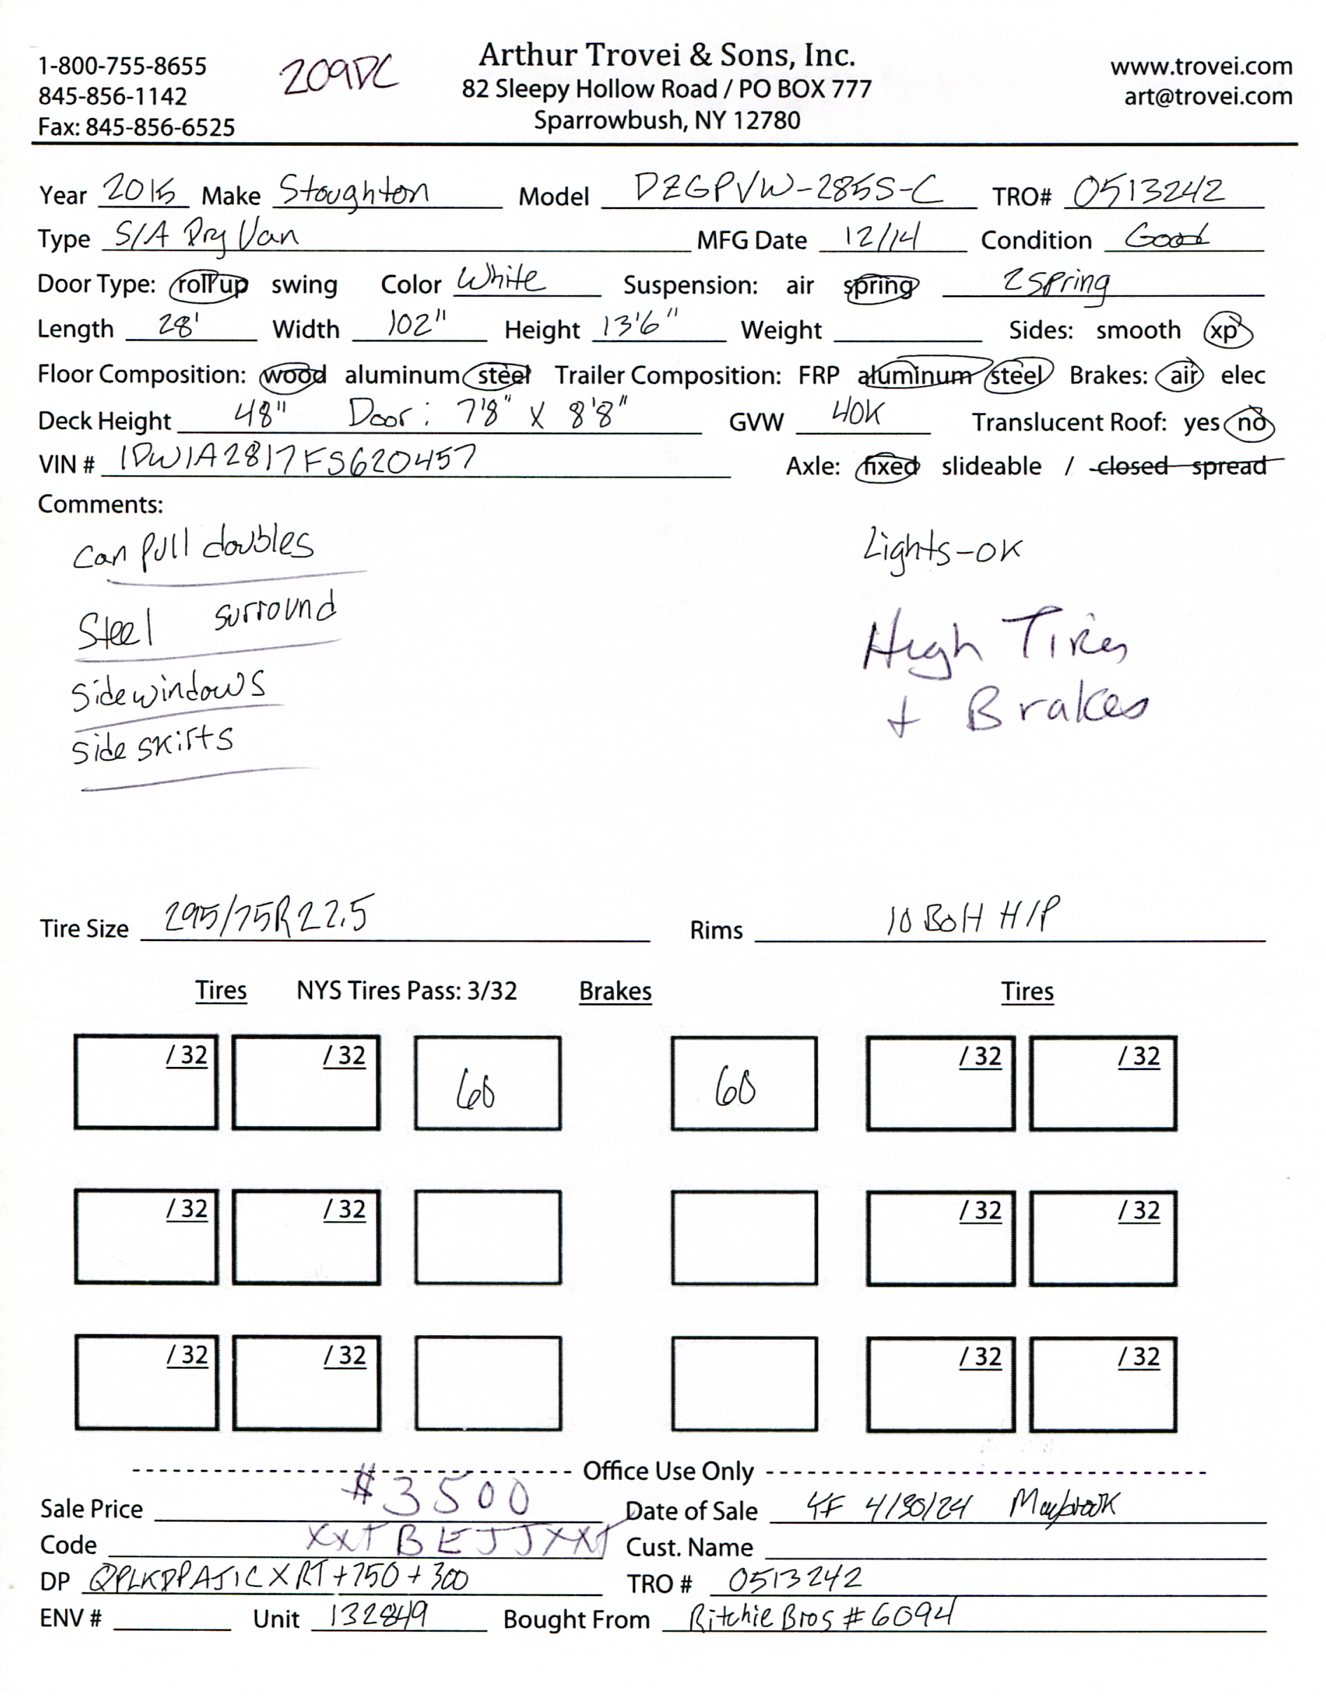 1-800-755-8655
845-856-1142
Fax: 845-856-6525
209DC
Arthur Trovei & Sons, Inc.
82 Sleepy Hollow Road / PO BOX 777
Sparrowbush, NY 12780
www.trovei.com
art@trovei.com
Year 2015 Make Stoughton Model DZGPVW-285S-C TRO# 0513242
Type S/A Dry Van MFG Date 12/14 Condition Good
Door Type: roll up swing Color White Suspension: air spring 2 Spring
Length 28' Width 102" Height 13'6" Weight Sides: smooth xp
Floor Composition: wood aluminum steel Trailer Composition: FRP aluminum steel Brakes: air elec
Deck Height 48" Door: 7'8" X 8'8" GVW 40K Translucent Roof: yes no
VIN # 1DW1A2817FS620457 Axle: fixed slideable / closed spread
Comments:
Can pull doubles
Steel surround
Side windows
Side skirts
Lights-OK
High Tires
+ Brakes
Tire Size 295/75R22.5 Rims 10 BOH H/P
Tires NYS Tires Pass: 3/32 Brakes Tires
/ 32 / 32 60 60 / 32 / 32
/ 32 / 32 / 32 / 32
/ 32 / 32 / 32 / 32
Office Use Only
Sale Price $3500 Date of Sale 4/30/24 Maybrook
Code XXTBEJJXXT Cust. Name
DP QPLKDPAJICXRT+750+300 TRO # 0513242
ENV # Unit 132849 Bought From Ritchie Bros #6094